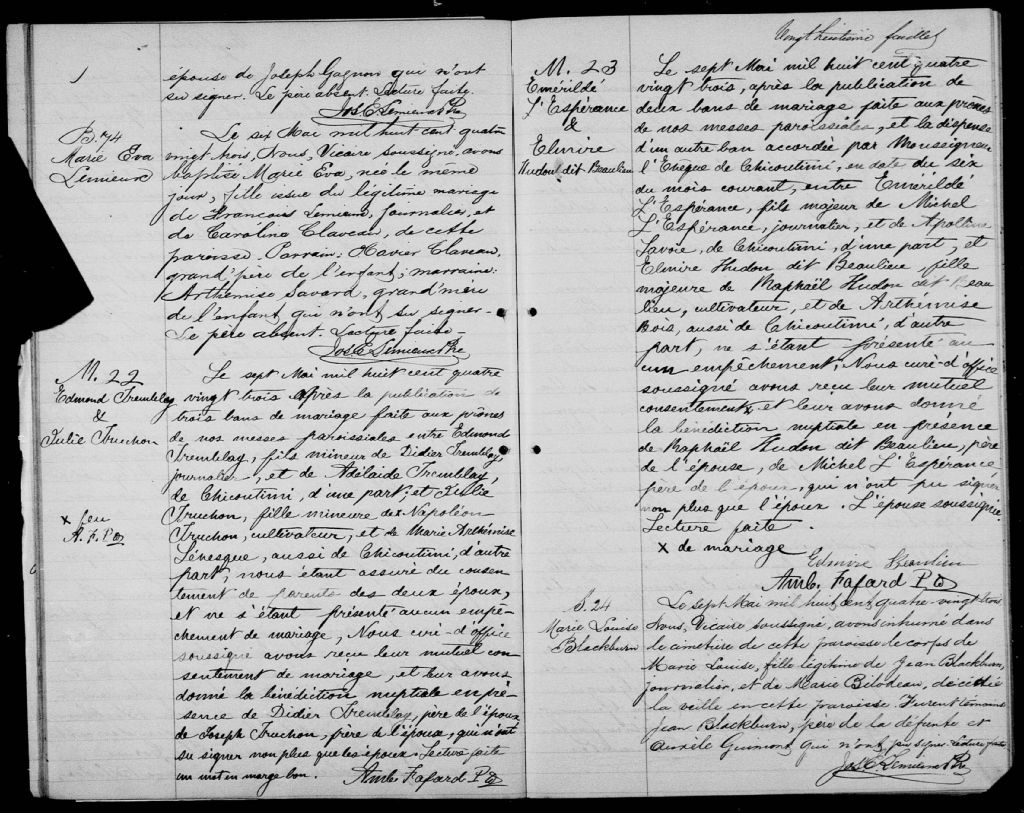 épouse de Joseph Gagnon qui n'ont
su signer. Le père absent. Lecture faite.
Jos E Lemieux Ptre
B. 74
Marie Eva
Lemieux
Le six Mai mil huit cent quatre
vingt trois, Nous, Vicaire soussigné, avons
baptisé Marie Eva, née le même
jour, fille issue du légitime mariage
de Francois Lemieux, journalier, et
de Caroline Claveau, de cette
paroisse. Parrain: Xavier Claveau,
grand'père de l'enfant; marraine:
Arthémise Savard, grand'mère
de l'enfant qui n'ont su signer-
Le père absent. Lecture faite-
Jos E Lemieux Ptre
M. 22
Edmond Tremblay
&
Julie Truchon
Le sept Mai mil huit cent quatre
vingt trois après la publication de
trois bans de mariage faite aux prônes
de nos messes paroissiales entre Edmond
Tremblay, fils mineur de Didier Tremblay,
journalier, et de Adelaïde Tremblay,
de Chicoutimi, d'une part, et Julie
Truchon, fille mineure de x Napoléon
Truchon, cultivateur, et de Marie Arthémise
Lévesque, aussi de Chicoutimi, d'autre
part, nous étant assuré du consen-
tement de parents des deux époux,
et ne s'étant présenté aucun empê-
chement de mariage, Nous curé-d'office
soussigné avons reçu leur mutuel con-
sentement de mariage, et leur avons
donné la bénédiction nuptiale en pré-
sence de Didier Tremblay, père de l'époux,
de Joseph Truchon, frère de l'époux, qui n'ont
su signer non plus que les époux. Lecture faite
un mot en marge bon. Amb. Fafard Ptre
x feu
A. F. Ptre
Vingt huitième feuillet
M. 23
Emérilde
L'Espérance
&
Elmire
Hudon dit Beaulieu
Le sept Mai mil huit cent quatre
vingt trois, après la publication de
deux bans de mariage faite aux prônes
de nos messes paroissiales, et la dispense
d'un autre ban accordée par Monseigneur
l'Evêque de Chicoutimi, en date du six
du mois courant, entre Emérilde
L'Espérance, fils majeur de Michel
L'Espérance, journalier, et de Apolline
Savoie, de Chicoutimi, d'une part, et
Elmire Hudon dit Beaulieu, fille
majeure de Raphaël Hudon dit Beau
lieu, cultivateur, et de Arthémise
Bois, aussi de Chicoutimi, d'autre
part, ne s'étant présenté au
cun empêchement, Nous curé-d'office
soussigné avons reçu leur mutuel
consentement x, et leur avons donné
la bénédiction nuptiale en présence
de Raphaël Hudon dit Beaulieu, père
de l'épouse, de Michel L'Espérance,
père de l'époux, qui n'ont pu signer
non plus que l'époux. L'épouse soussignée.
Lecture faite.
x de mariage
Elmire Beaulieu
Amb. Fafard Ptre
S. 24
Marie Louise
Blackburn
Le sept Mai mil huit cent quatre-vingt trois
Nous, Vicaire soussigné, avons inhumé dans
le cimetière de cette paroisse le corps de
Marie Louise, fille légitime de Jean Blackburn,
journalier, et de Marie Bilodeau, décédée
la veille en cette paroisse. Furent témoins
Jean Blackburn, père de la défunte et
Aurèle Guimont qui n'ont pas signé. Lecture faite
Jos E Lemieux Ptre